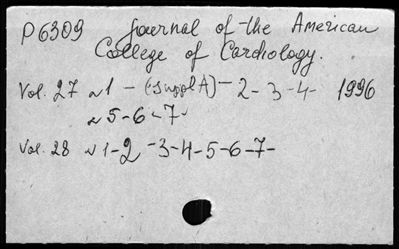 P6309 Journal of the American
College of Cardiology.
Vol. 27 N1 - (Suppl A) - 2 - 3 - 4 - 1996
N5 - 6 - 7 -
Vol. 28 N1 - 2 - 3 - 4 - 5 - 6 - 7 -